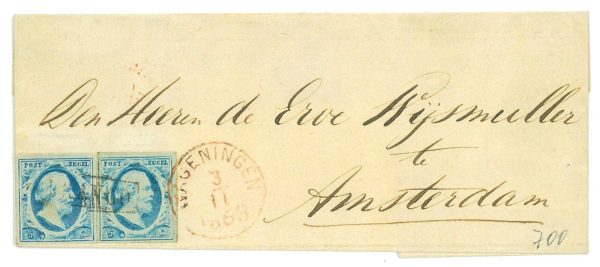 Den Heeren de Erve Wijsmuller
te
Amsterdam
POST ZEGEL POST ZEGEL
WAGENINGEN
3
11
1863
700